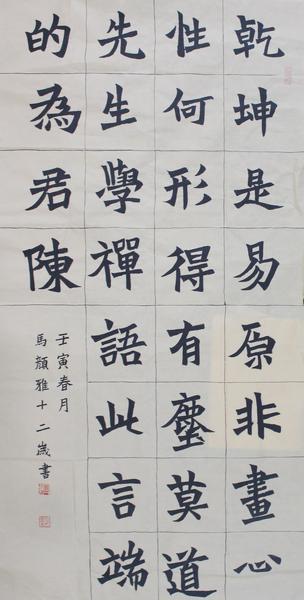 乾坤是易原非畫心
性何形得有塵莫道
先生學禪語此言端
的為君陳
壬寅春月
馬顏雅十二歲書